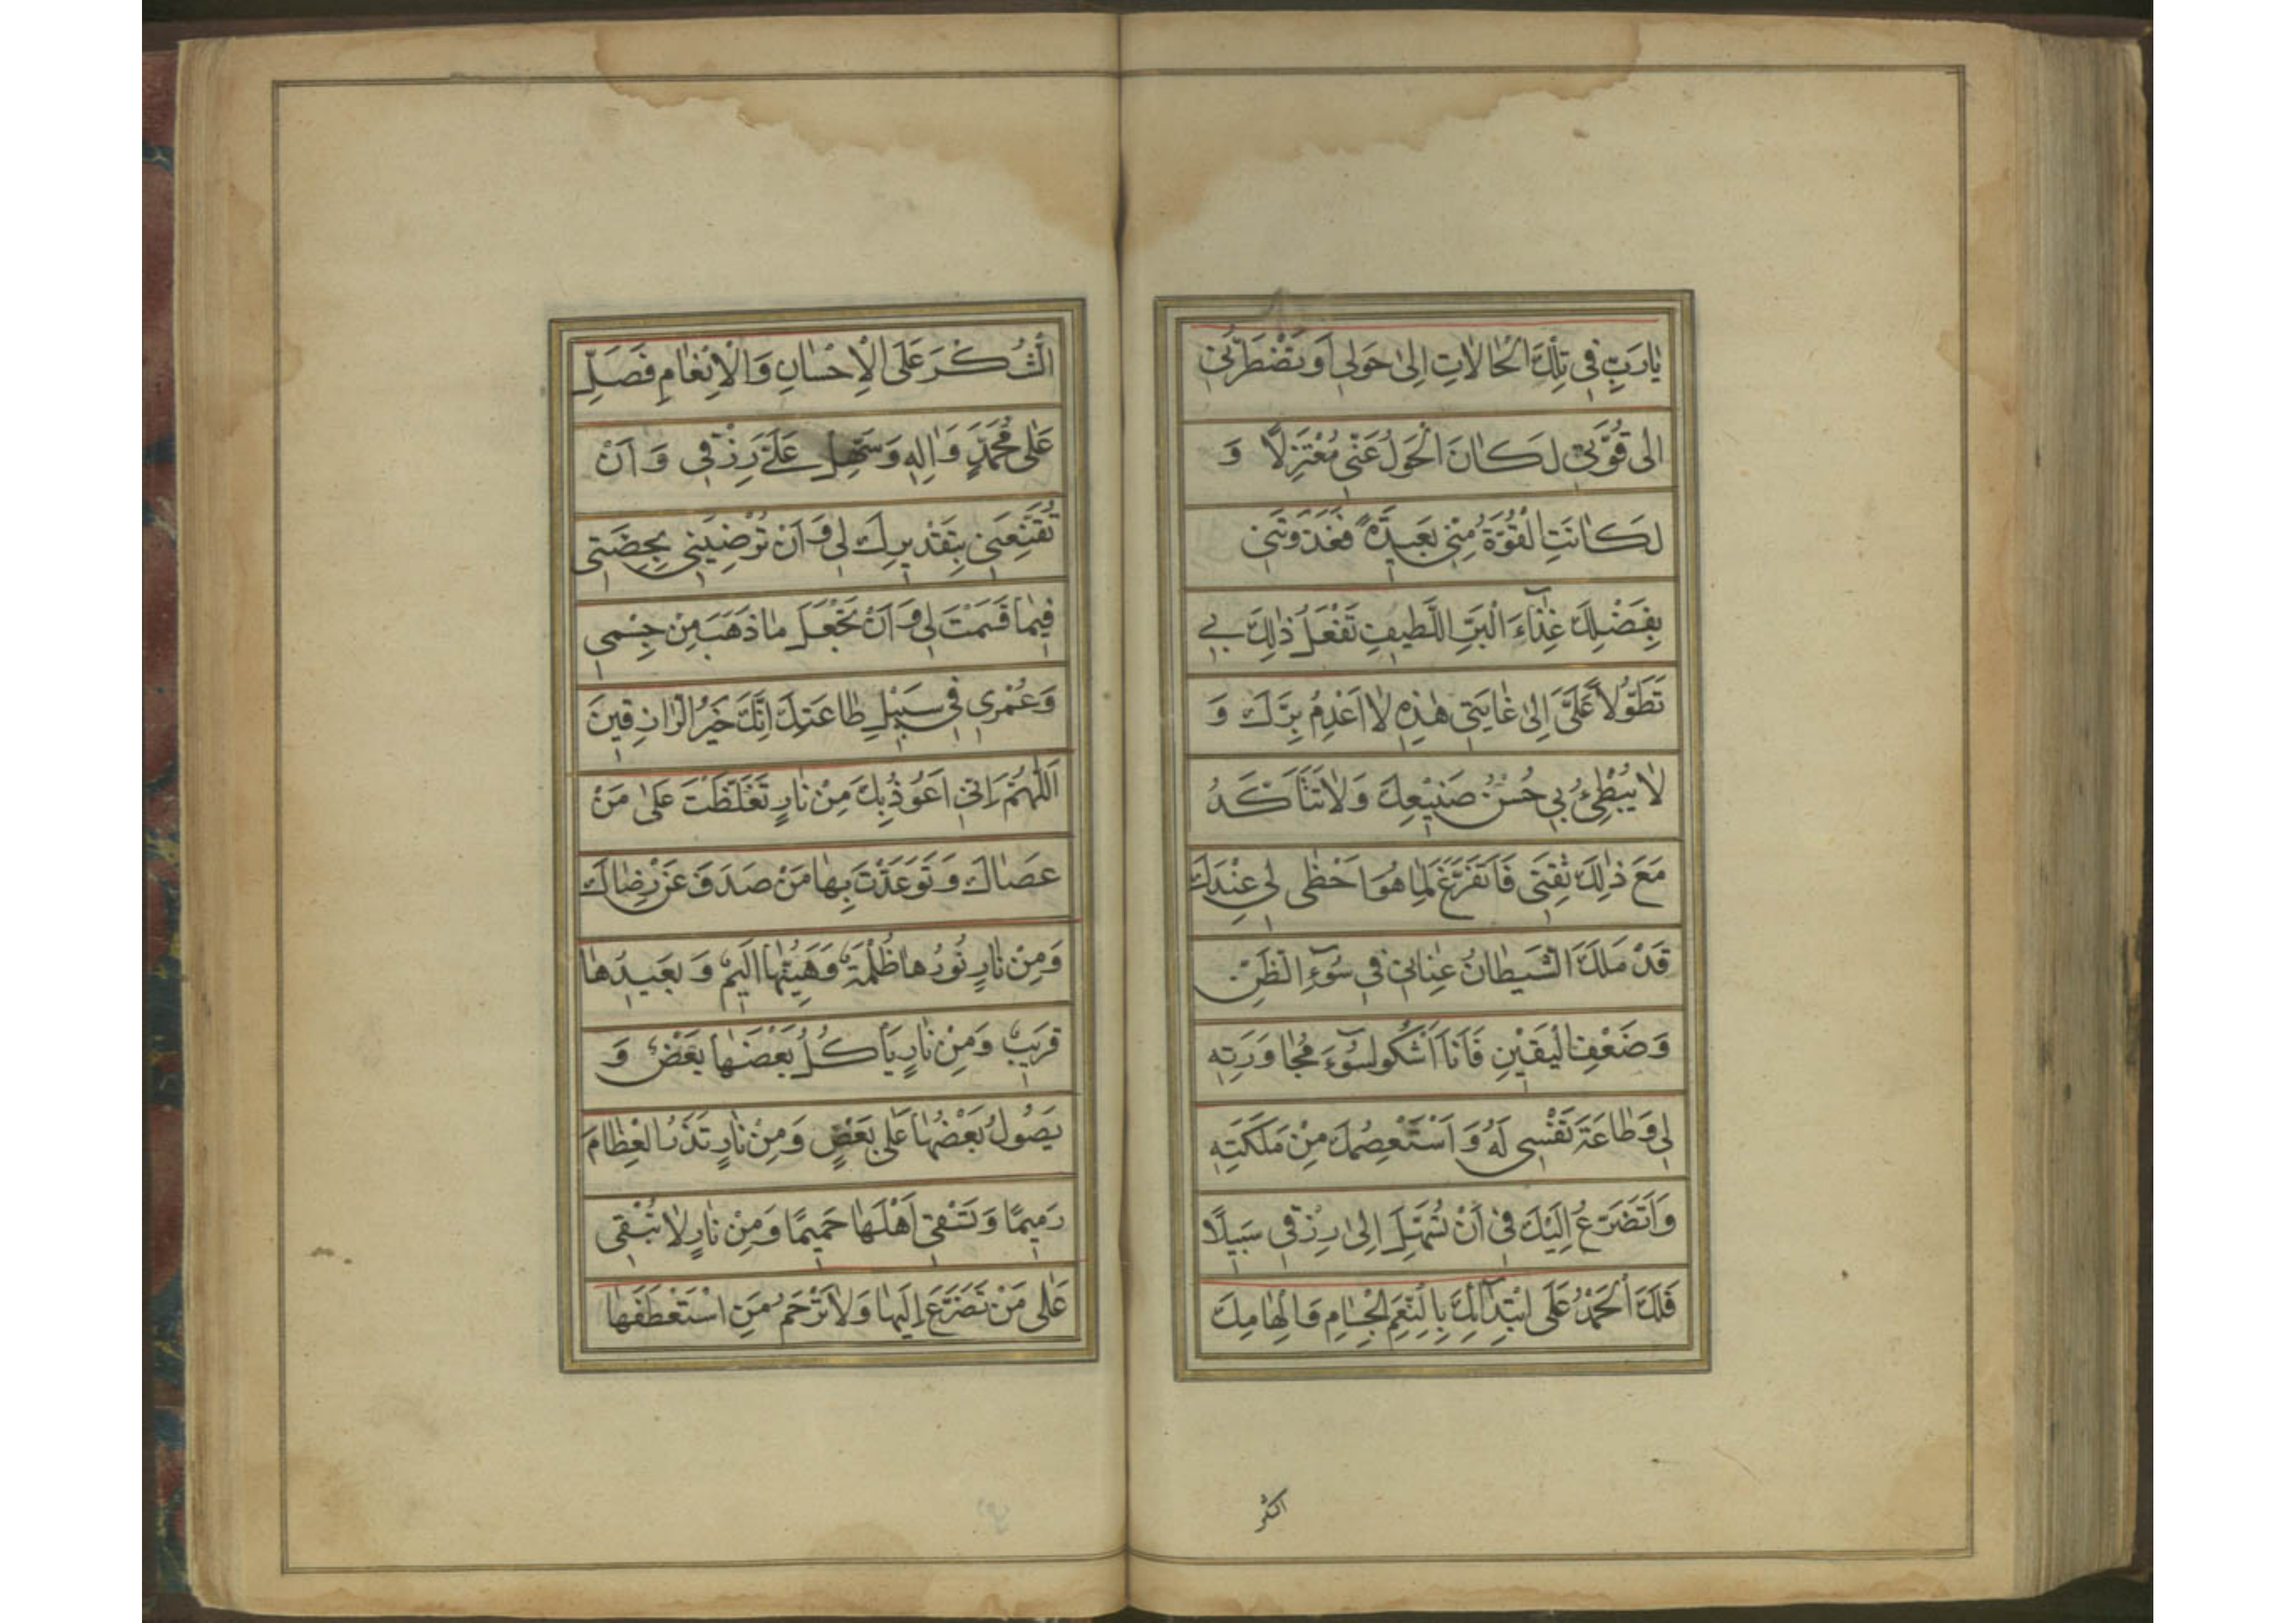 يٰارَبِّ فِي تِلْكَ الْحٰالاٰتِ اِلىٰ حَوْلي اَوْ تَضْطَرُّني
اِلى قُوَّتي لَكٰانَ الْحَوْلُ عَنّي مُعْتَزِلاً وَ
لَكٰانَتِ الْقُوَّةُ مِنّي بَعيدَةً فَغَذَوْتَني
بِفَضْلِكَ غِذٰاءَ الْبَرِّ اللَّطيفِ تَفْعَلُ ذٰلِكَ بي
تَطَوُّلاً عَلَيَّ اِلىٰ غٰايَتي هٰذِهِ لاٰ اَعْدِمُ بِرَّكَ وَ
لاٰ يُبْطِئُ بي حُسْنُ صَنيعِكَ وَلاٰ تَتَأَكَّدُ
مَعَ ذٰلِكَ ثِقَتي فَاَتَفَرَّغَ لِمٰا هُوَ اَحْظىٰ لي عِنْدَكَ
قَدْ مَلَكَ الشَّيْطٰانُ عِنٰاني في سُوٓءِ الظَّنِّ
وَضَعْفِ الْيَقينِ فَاَنَا اَشْكُو سُوٓءَ مُجٰاوَرَتِهِ
لي وَطٰاعَةَ نَفْسي لَهُ وَ اَسْتَعْصِمُكَ مِنْ مَلَكَتِهِ
وَاَتَضَرَّعُ اِلَيْكَ في اَنْ تُسَهِّلَ اِلىٰ رِزْقي سَبيلاً
فَلَكَ الْحَمْدُ عَلَى ابْتِدٰائِكَ بِالنِّعَمِ الْجِسٰامِ وَاِلْهٰامِكَ
الشُّكْرَ عَلَى الْاِحْسٰانِ وَالْاِنْعٰامِ فَصَلِّ
عَلىٰ مُحَمَّدٍ وَاٰلِهِ وَسَهِّلْ عَلَيَّ رِزْقي وَ اَنْ
تُقَنِّعَني بِتَقْديرِكَ لي وَ اَنْ تُرْضِيَني بِحِصَّتي
فيمٰا قَسَمْتَ لي وَ اَنْ تَجْعَلَ مٰا ذَهَبَ مِنْ جِسْمي
وَعُمْري في سَبيلِ طٰاعَتِكَ اِنَّكَ خَيْرُ الرّٰازِقينَ
اَللّٰهُمَّ اِنّي اَعُوذُ بِكَ مِنْ نٰارٍ تَغَلَّظْتَ عَلىٰ مَنْ
عَصٰاكَ وَ تَوَعَّدْتَ بِهٰا مَنْ صَدَفَ عَنْ رِضٰاكَ
وَمِنْ نٰارٍ نُورُهٰا ظُلْمَةٌ وَهَيِّنُهٰا اَليمٌ وَ بَعيدُهٰا
قَريبٌ وَمِنْ نٰارٍ يَأْكُلُ بَعْضَهٰا بَعْضٌ وَ
يَصُولُ بَعْضُهٰا عَلىٰ بَعْضٍ وَمِنْ نٰارٍ تَذَرُ الْعِظٰامَ
رَميمًا وَتَسْقي اَهْلَهٰا حَميمًا وَمِنْ نٰارٍ لاٰ تُبْقي
عَلىٰ مَنْ تَضَرَّعَ اِلَيْهٰا وَلاٰ تَرْحَمُ مَنِ اسْتَعْطَفَهٰا